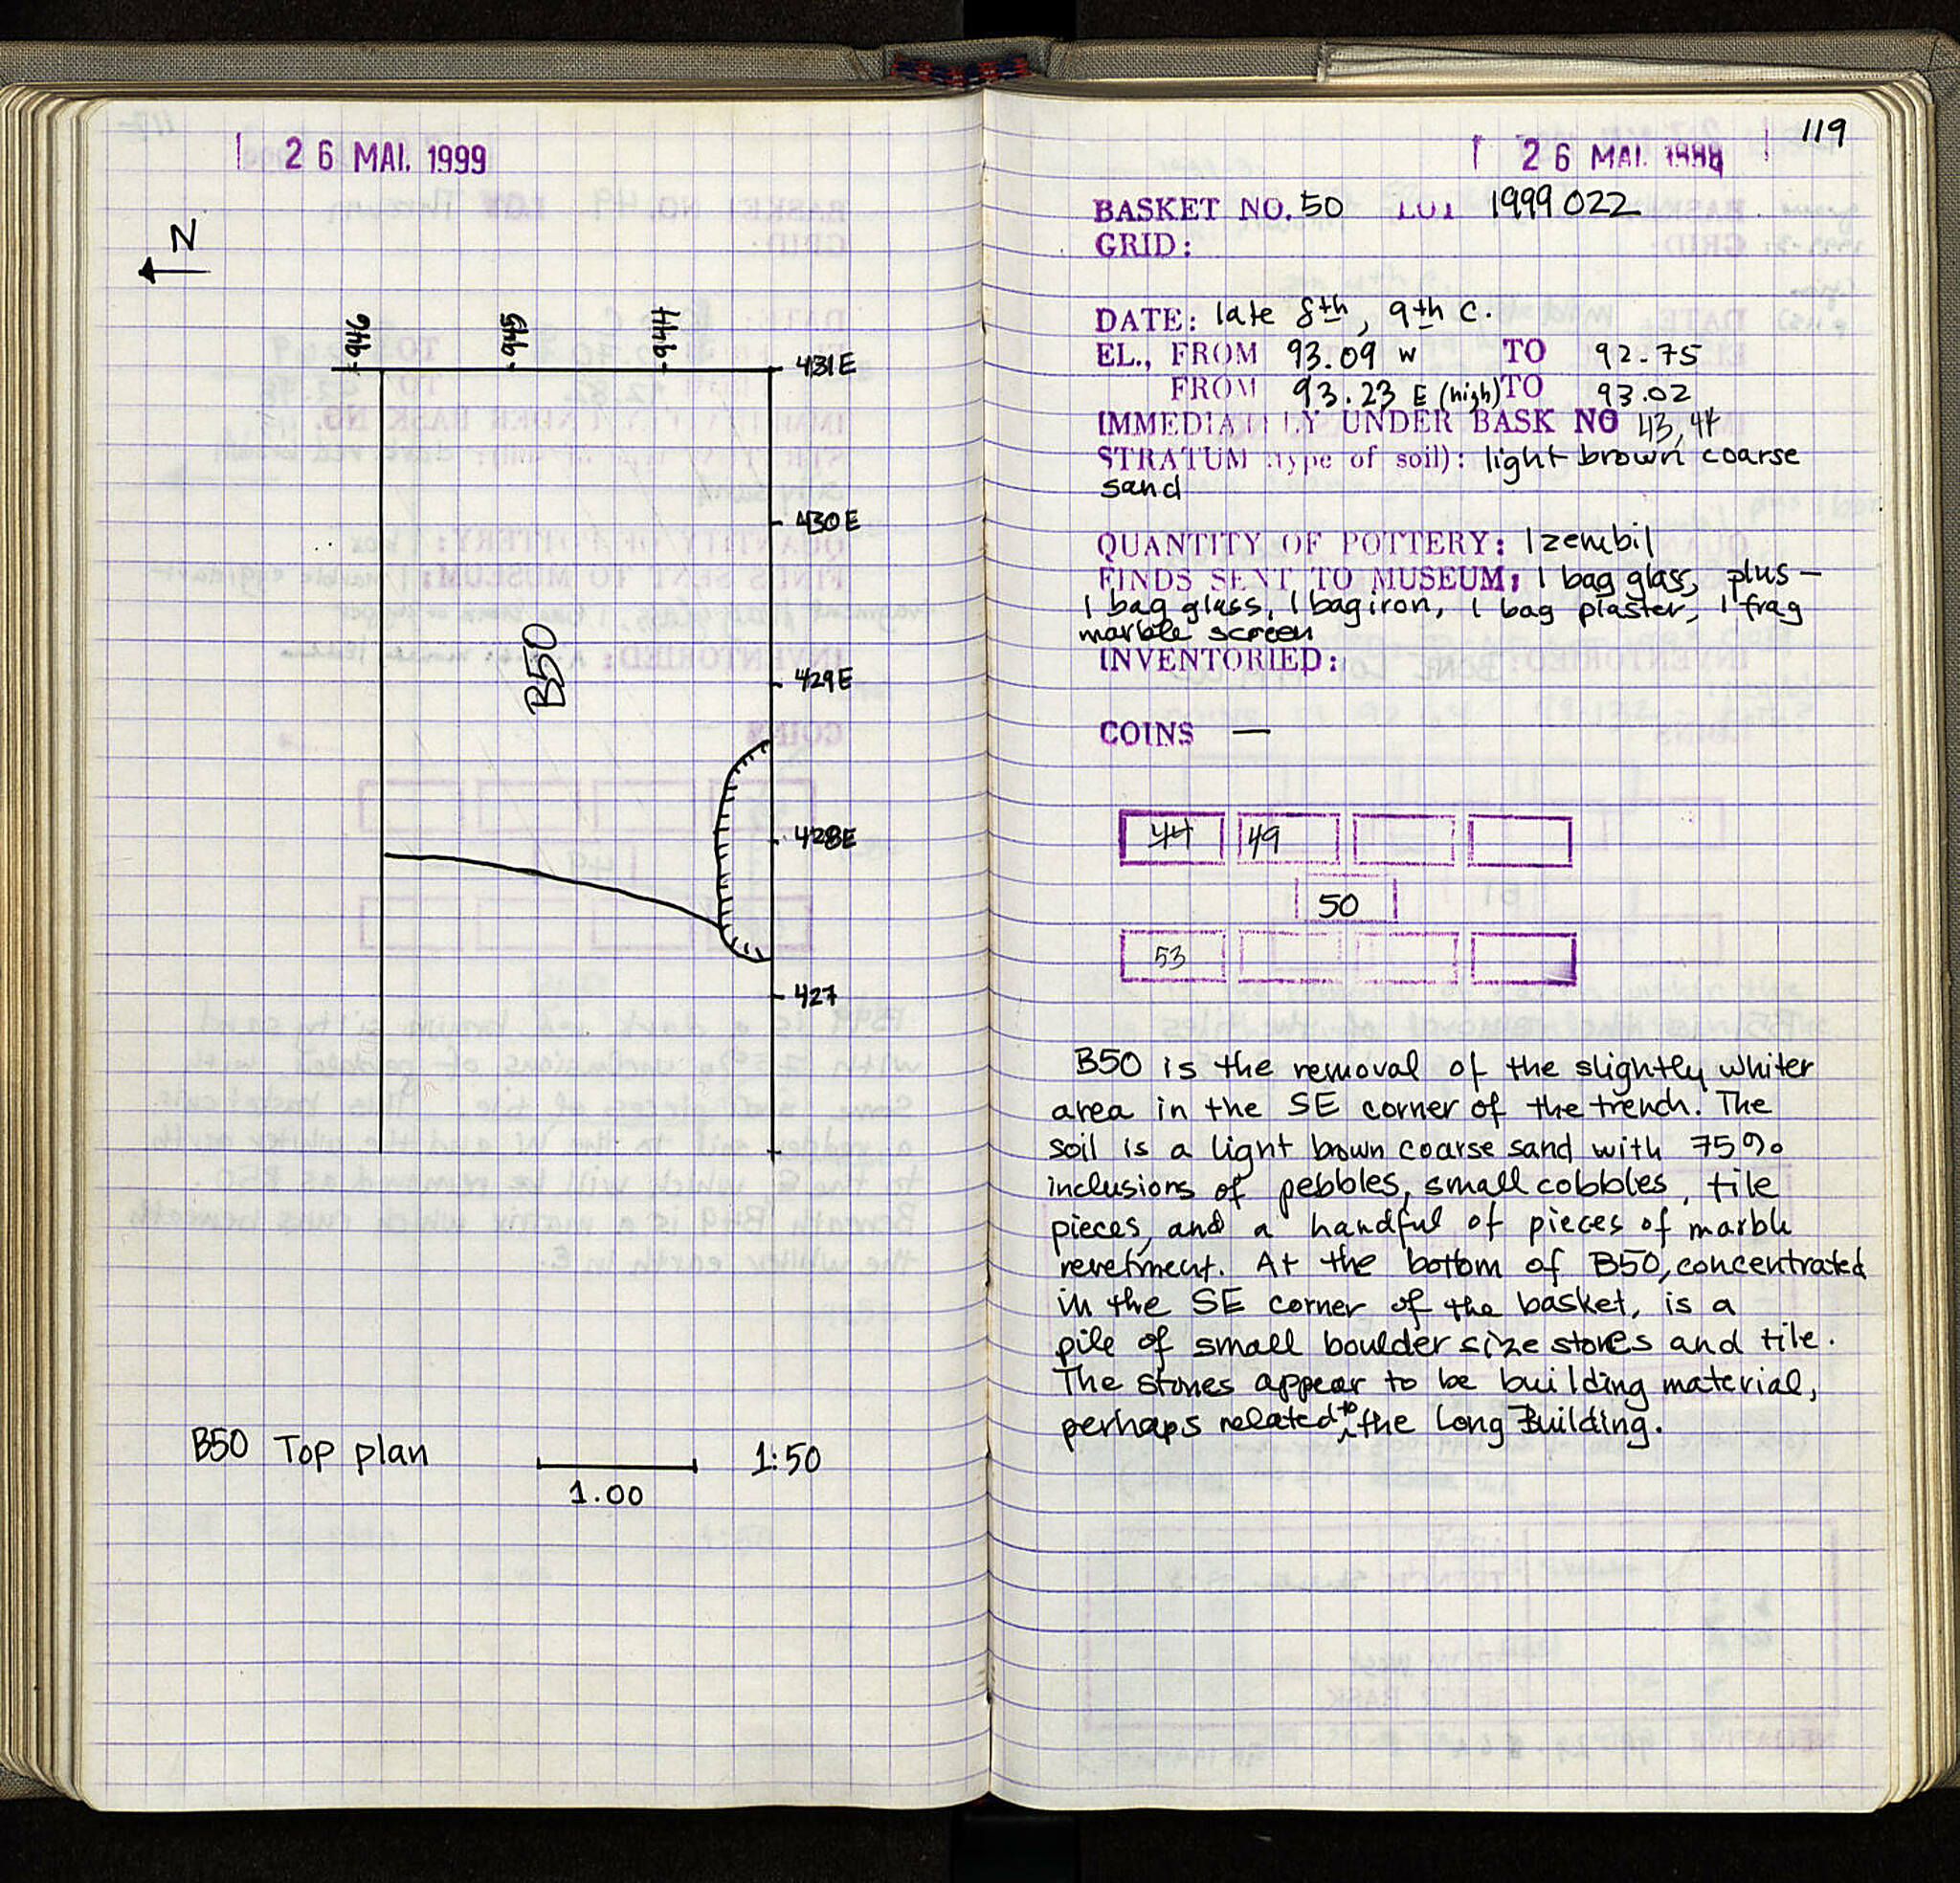 26 MAI. 1999
N
946
945
944
431E
430E
429E
428E
427
B50
B50 Top plan
1.00
1:50
119
26 MAI. 1999
BASKET NO. 50 LOT 1999 022
GRID:
DATE: late 8th, 9th c.
EL., FROM 93.09 W TO 92.75
FROM 93.23 E (high) TO 93.02
IMMEDIATELY UNDER BASK NO 43, 44
STRATUM (type of soil): light brown coarse
sand
QUANTITY OF POTTERY: 1 zembil
FINDS SENT TO MUSEUM: 1 bag glass, plus –
1 bag glass, 1 bag iron, 1 bag plaster, 1 frag
marble screen
INVENTORIED:
COINS —
44 49
50
53
B50 is the removal of the slightly whiter
area in the SE corner of the trench. The
soil is a light brown coarse sand with 75%
inclusions of pebbles, small cobbles, tile
pieces, and a handful of pieces of marble
revetment. At the bottom of B50, concentrated
in the SE corner of the basket, is a
pile of small boulder size stones and tile.
The stones appear to be building material,
perhaps related to the Long Building.